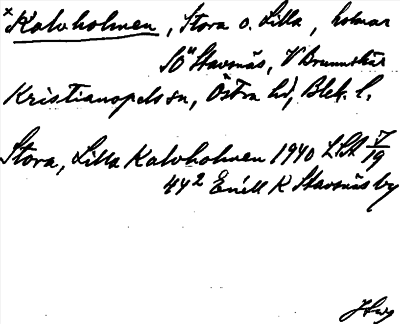 x Kalvholmen, Stora o. Lilla, holmar
SÖ Stavsnäs, V Brunnskär
Kristianopels sn, Östra hd, Blek. l.
Stora, Lilla Kalvholmen 1940 LSA 7/19
44² EnskK Stavsnäs by